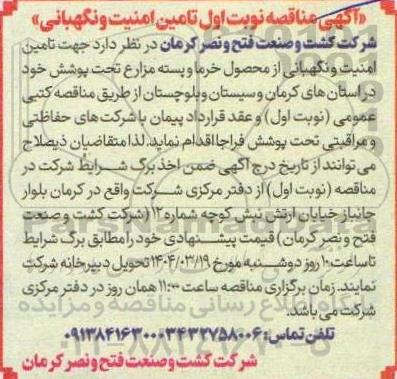 «آگهی مناقصه نوبت اول تامین امنیت و نگهبانی»
شرکت کشت و صنعت فتح و نصر کرمان در نظر دارد جهت تامین
امنیت و نگهبانی از محصول خرما و پسته مزارع تحت پوشش خود
در استان های کرمان و سیستان و بلوچستان از طریق مناقصه کتبی
عمومی (نوبت اول) و عقد قرارداد پیمان با شرکت های حفاظتی
و مراقبتی تحت پوشش فراجا اقدام نماید. لذا متقاضیان ذیصلاح
می توانند از تاریخ درج آگهی ضمن اخذ برگ شرایط شرکت در
مناقصه (نوبت اول) از دفتر مرکزی شرکت واقع در کرمان بلوار
جانباز خیابان ارتش نبش کوچه شماره ۱۲ (شرکت کشت و صنعت
فتح و نصر کرمان) قیمت پیشنهادی خود را مطابق برگ شرایط
تا ساعت ۱۰ روز دوشنبه مورخ ۱۴۰۴/۰۳/۱۹ تحویل دبیرخانه شرکت
نمایند. زمان برگزاری مناقصه ساعت ۱۱:۰۰ همان روز در دفتر مرکزی
شرکت می باشد.
تلفن تماس: ۰۳۴۳۲۷۵۸۰۰۶-۰۹۱۳۸۴۱۶۳۰۰
شرکت کشت و صنعت فتح و نصر کرمان
ParsNamadData
پایگاه اطلاع رسانی مناقصه و مزایده